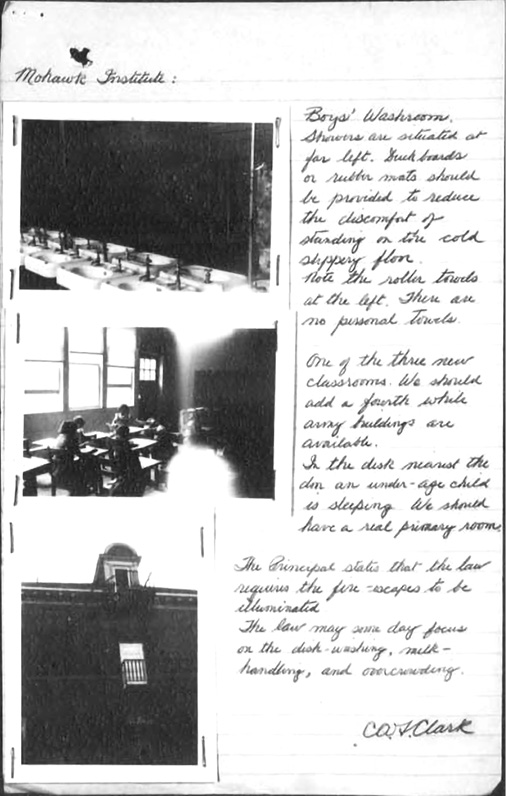 Mohawk Institute :
Boys' Washroom.
Showers are situated at
far left. Duck boards
or rubber mats should
be provided to reduce
the discomfort of
standing on the cold
slippery floor.
Note the roller towels
at the left. There are
no personal towels.
One of the three new
classrooms. We should
add a fourth while
army buildings are
available.
In the disk nearest the
door an under-age child
is sleeping. We should
have a real primary room.
The Principal states that the law
requires the fire-escapes to be
illuminated
The law may some day focus
on the dish-washing, milk-
handling, and overcrowding.
Clark